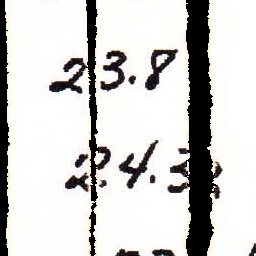 23.8
24.3